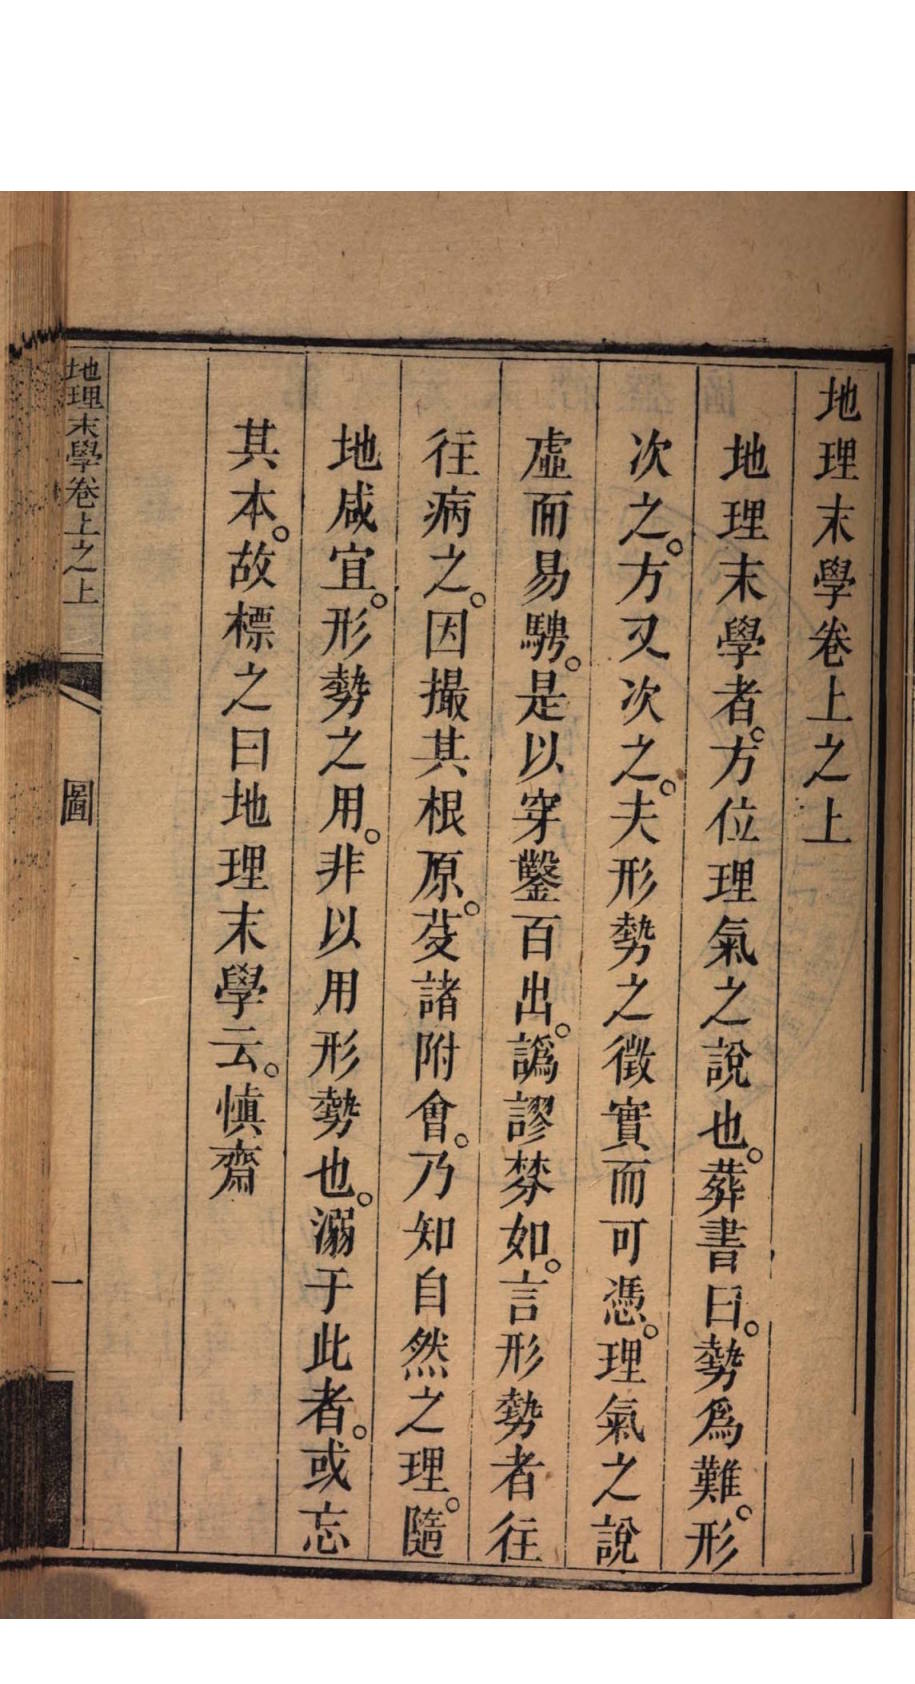 地理末學卷上之上
地理末學者。方位理氣之說也。葬書曰。勢爲難。形
次之。方又次之。夫形勢之徵實而可憑。理氣之說
虛而易騁。是以穿鑿百出。譌謬棼如。言形勢者往
往病之。因撮其根原。芟諸附會。乃知自然之理。隨
地咸宜。形勢之用。非以用形勢也。溺于此者。或忘
其本。故標之曰地理末學云。愼齋
地理末學卷上之上
圖
一